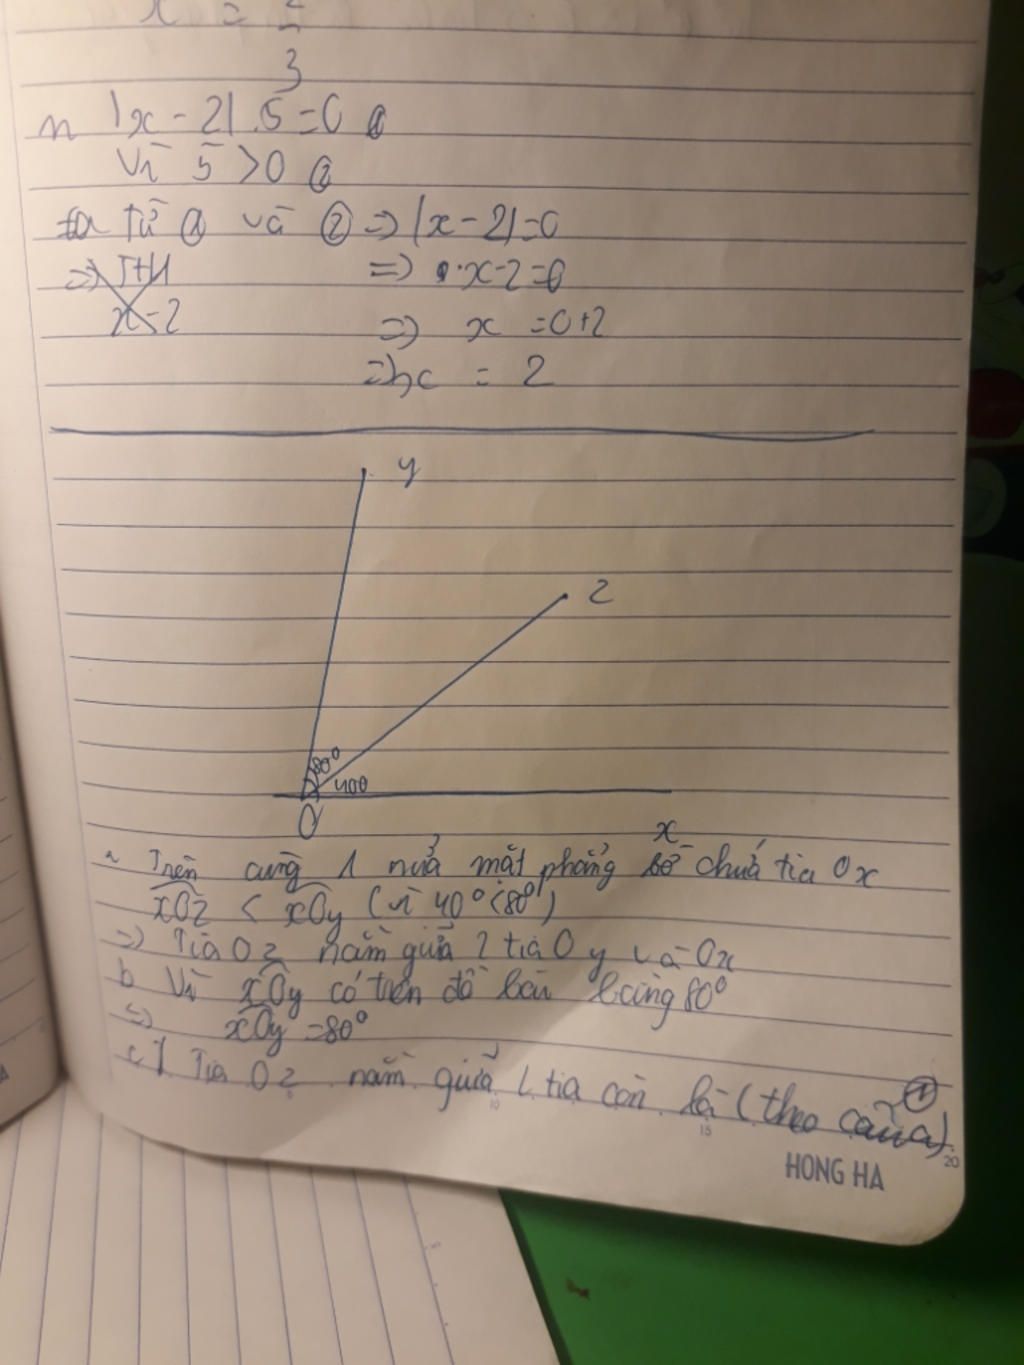 x =
3
n |x - 2| .5 = 0 ①
Vì 5 > 0 ②
Từ ① và ② => |x - 2| = 0
=> x - 2 = 0
x - 2
=> x = 0 + 2
=> x = 2
y
z
80°
40°
O
x
a Trên cùng 1 nửa mặt phẳng bờ chứa tia Ox
xOz < xOy (vì 40° < 80°)
=> Tia Oz nằm giữa 2 tia Oy và Ox
b Vì xOy có trên đề bài bằng 80°
=> xOy = 80°
c] Tia Oz nằm giữa 2 tia còn lại (theo câu a) ①
10
15
20
HONG HA